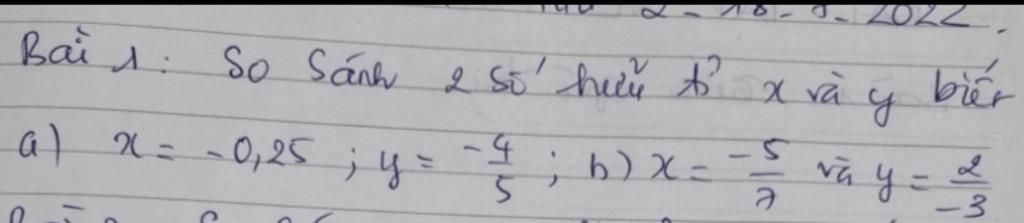 2 - 18 - 9 - 2022.
Bài 1: So Sánh 2 số hữu tỉ x và y biết
a) x = -0,25 ; y = -4/5 ; b) x = -5/7 và y = 2/-3